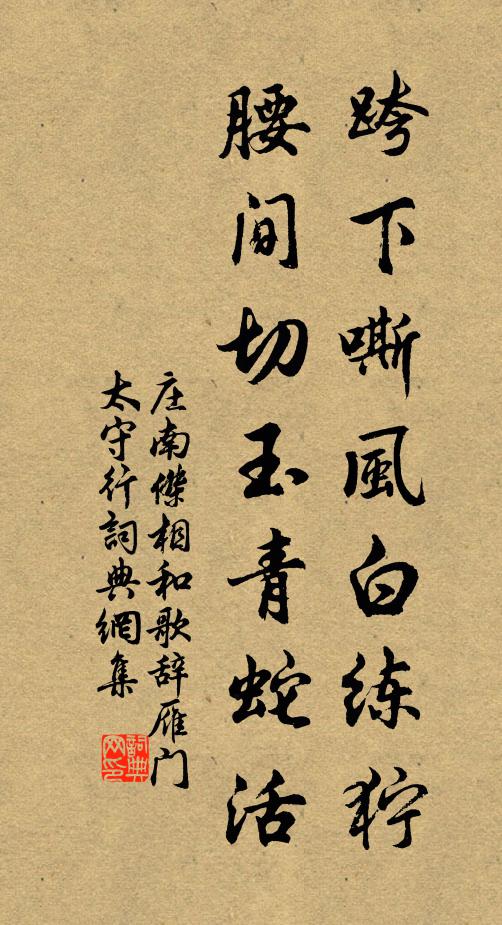 跨下嘶風白练狞
腰间切玉青蛇活
庄南傑相和歌辞雁门
太守行詞典網集
詞典网印